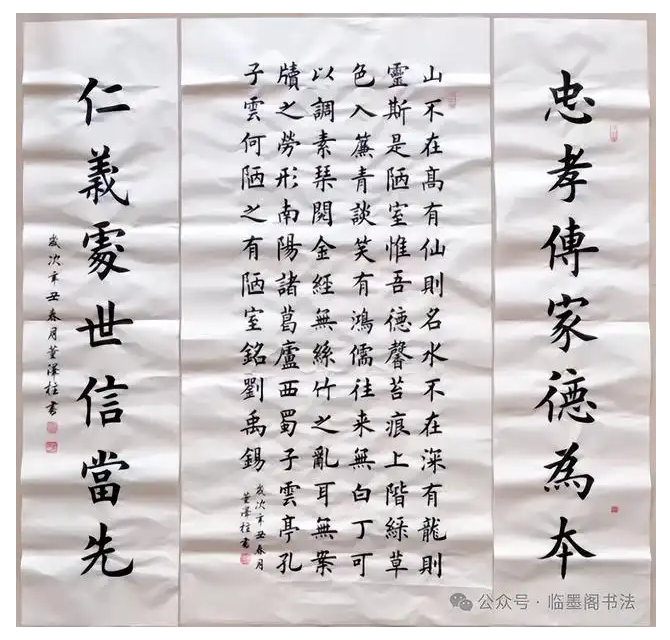 忠孝傳家德為本
山不在高有仙則名水不在深有龍則
靈斯是陋室惟吾德馨苔痕上階綠草
色入簾青談笑有鴻儒往来無白丁可
以調素琴閱金經無絲竹之亂耳無案
牘之勞形南陽諸葛廬西蜀子雲亭孔
子雲何陋之有陋室銘劉禹錫
歲次辛丑春月
董澤柱書
仁義處世信當先
歲次辛丑春月董澤柱書
公众号·临墨阁书法